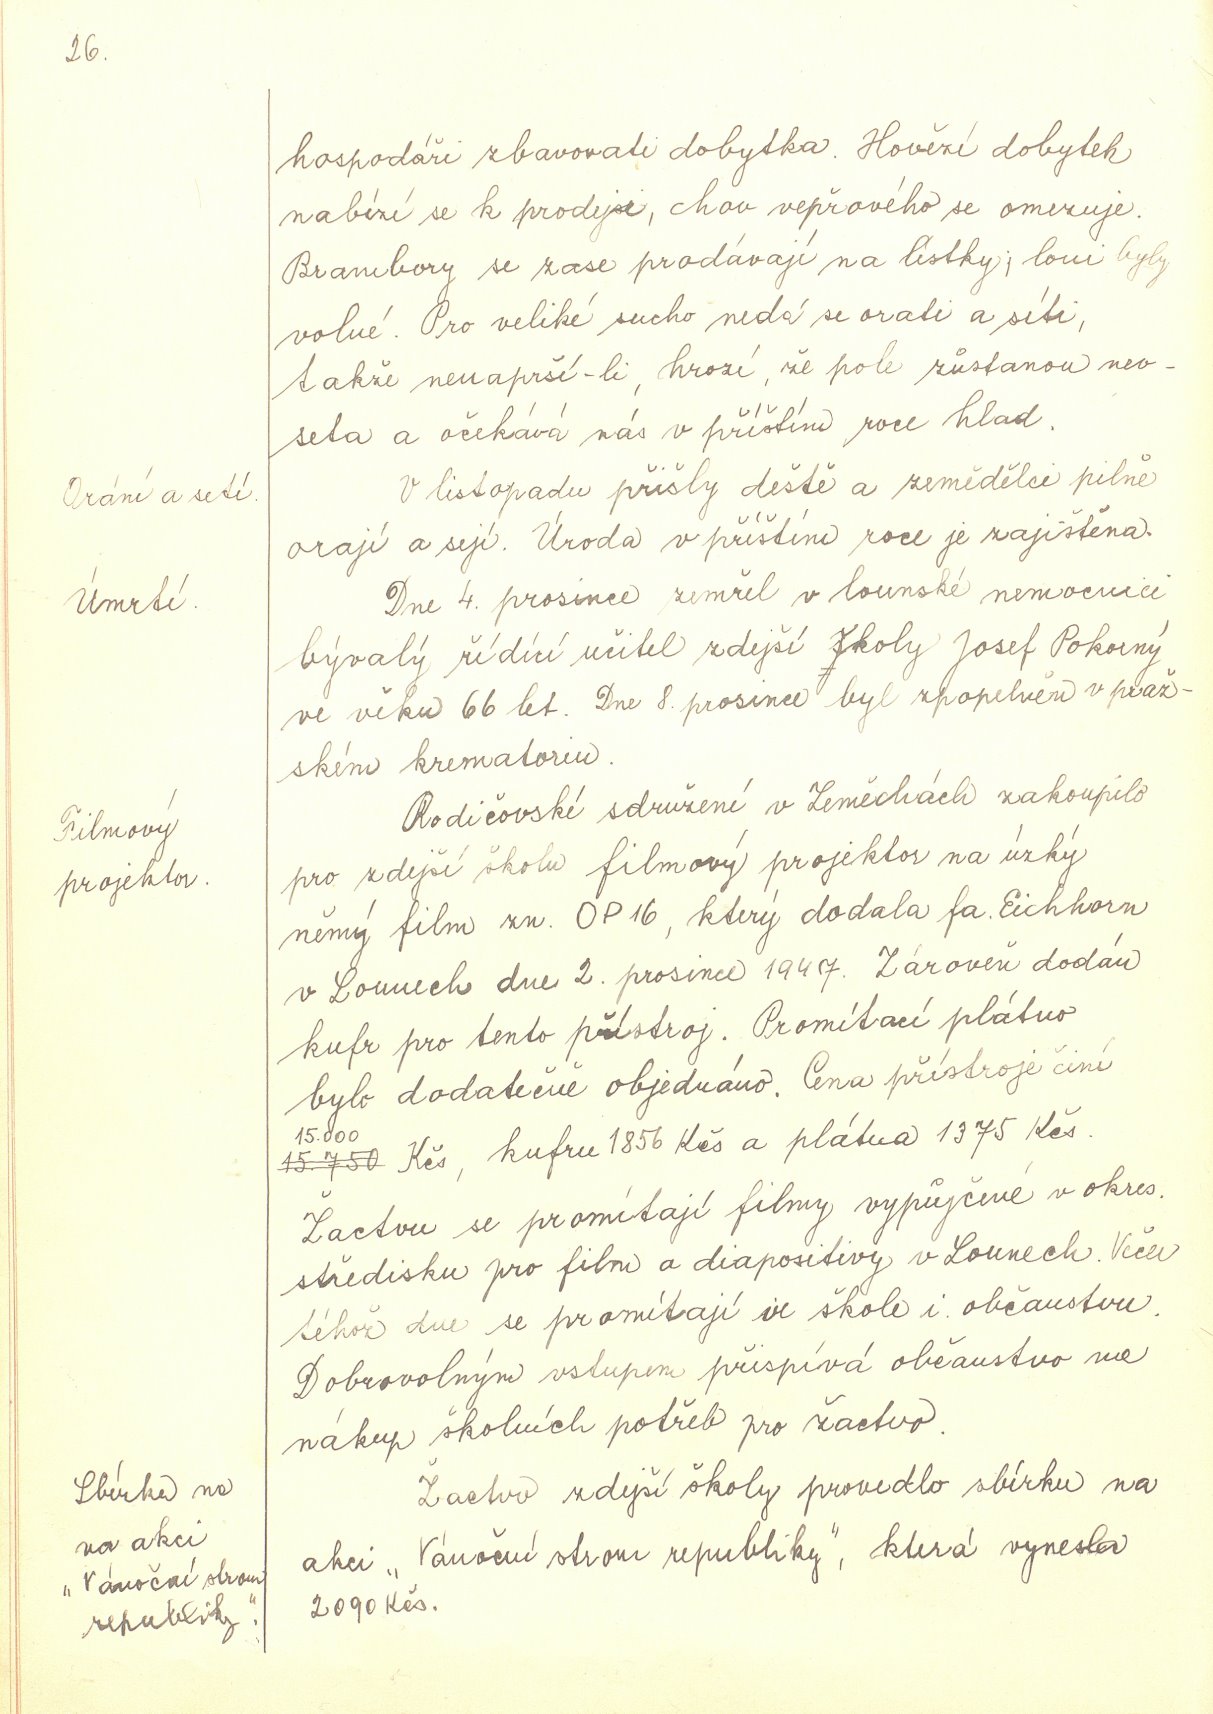 26.
hospodáři zbavovati dobytka. Hovězí dobytek
nabízí se k prodeji, chov vepřového se omezuje.
Brambory se zase prodávají na lístky; loni byly
volné. Pro veliké sucho nedá se orati a síti,
takže nenaprší-li, hrozí, že pole zůstanou neo-
seta a očekává nás v příštím roce hlad.
Orání a setí.
V listopadu přišly deště a zemědělci pilně
orají a sejí. Úroda v příštím roce je zajištěna.
Úmrtí.
Dne 4. prosince zemřel v lounské nemocnici
bývalý řídící učitel zdejší školy Josef Pokorný
ve věku 66 let. Dne 8. prosince byl zpopelněn v praž-
ském krematoriu.
Filmový
projektor.
Rodičovské sdružení v Zeměchách zakoupilo
pro zdejší školu filmový projektor na úzký
němý film zn. OP 16, který dodala fa. Eichhorn
v Lounech dne 2. prosince 1947. Zároveň dodán
kufr pro tento přístroj. Promítací plátno
bylo dodatečně objednáno. Cena přístroje činí
15.000
15.750 Kčs, kufru 1856 Kčs a plátna 1375 Kčs.
Žactvu se promítají filmy vypůjčené v okres.
středisku pro film a diapositivy v Lounech. Večer
téhož dne se promítají ve škole i občanstvu.
Dobrovolným vstupem přispívá občanstvo na
nákup školních potřeb pro žactvo.
Sbírka na
na akci
„Vánoční strom
republiky“.
Žactvo zdejší školy provedlo sbírku na
akci „Vánoční strom republiky“, která vynesla
2090 Kčs.